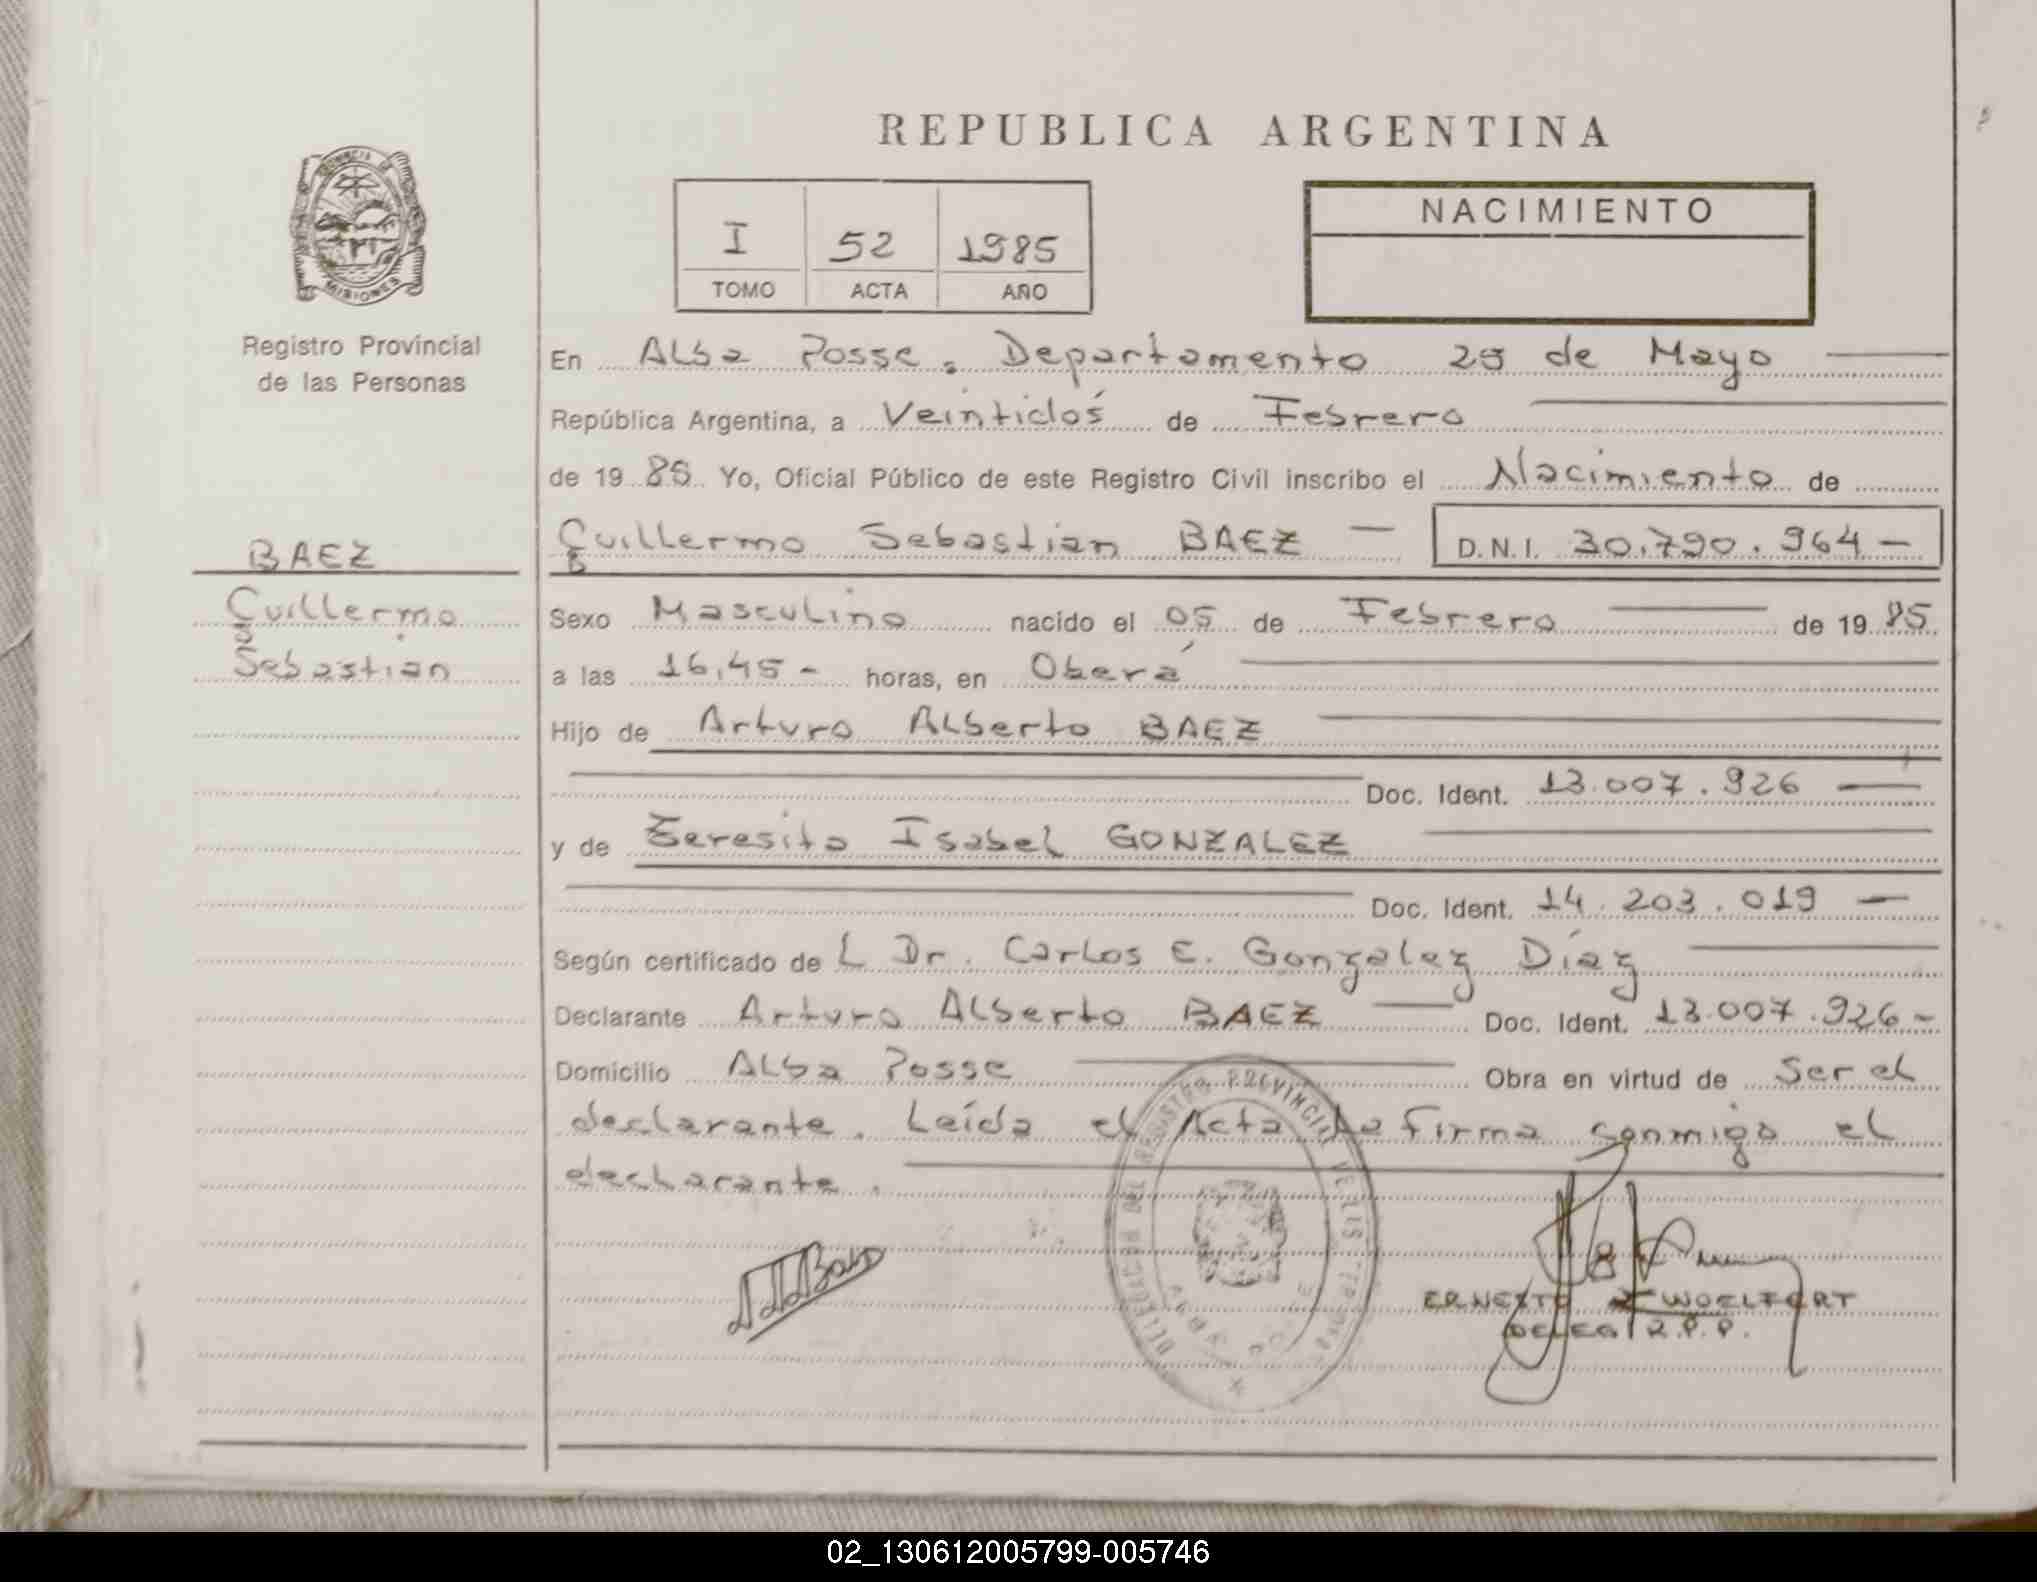 REPUBLICA ARGENTINA
PROVINCIA DE
MISIONES
Registro Provincial
de las Personas
I 52 1985
TOMO ACTA AÑO
NACIMIENTO
En Alba Posse. Departamento 25 de Mayo
República Argentina, a Veintidós de Febrero
de 19 85 Yo, Oficial Público de este Registro Civil inscribo el Nacimiento de
Guillermo Sebastian BAEZ — D.N.I. 30.790.964 —
BAEZ
Guillermo
Sebastian
Sexo Masculino nacido el 05 de Febrero de 19 85
a las 16,45 - horas, en Oberá
Hijo de Arturo Alberto BAEZ
Doc. Ident. 13.007.926
y de Teresita Isabel GONZALEZ
Doc. Ident. 14.203.019 —
Según certificado de L Dr. Carlos E. Gonzalez Díaz
Declarante Arturo Alberto BAEZ Doc. Ident. 13.007.926 -
Domicilio Alba Posse Obra en virtud de Ser el
declarante. Leída el Acta La firma conmigo el
declarante.
DELEGACION DEL REGISTRO PROVINCIAL DE LAS
ERNESTO WOELFERT
DELEG R.P.P.
02_130612005799-005746